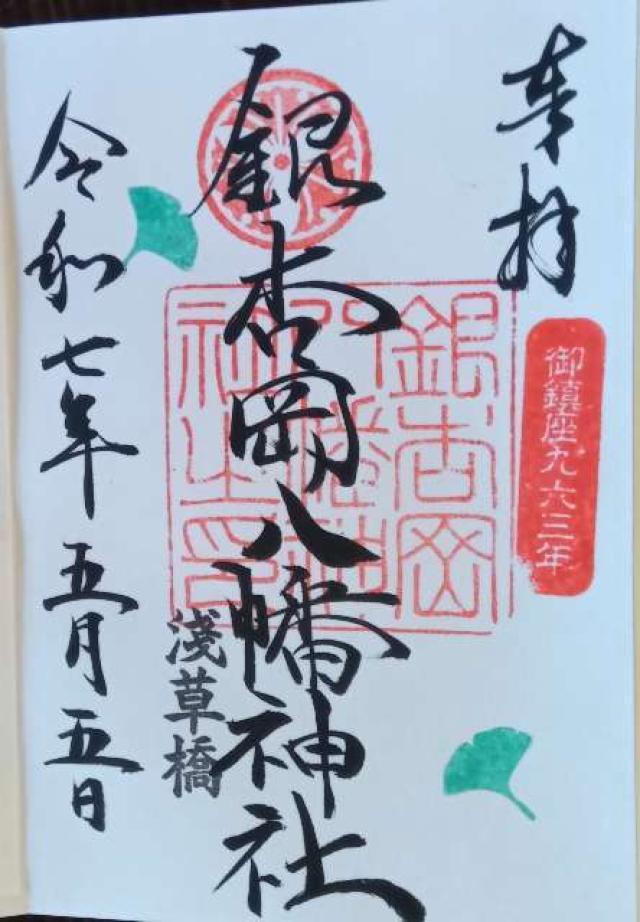 奉拝
御鎮座九六三年
銀杏岡八幡神社
銀杏岡八幡神社之印
淺草橋
令和七年五月五日